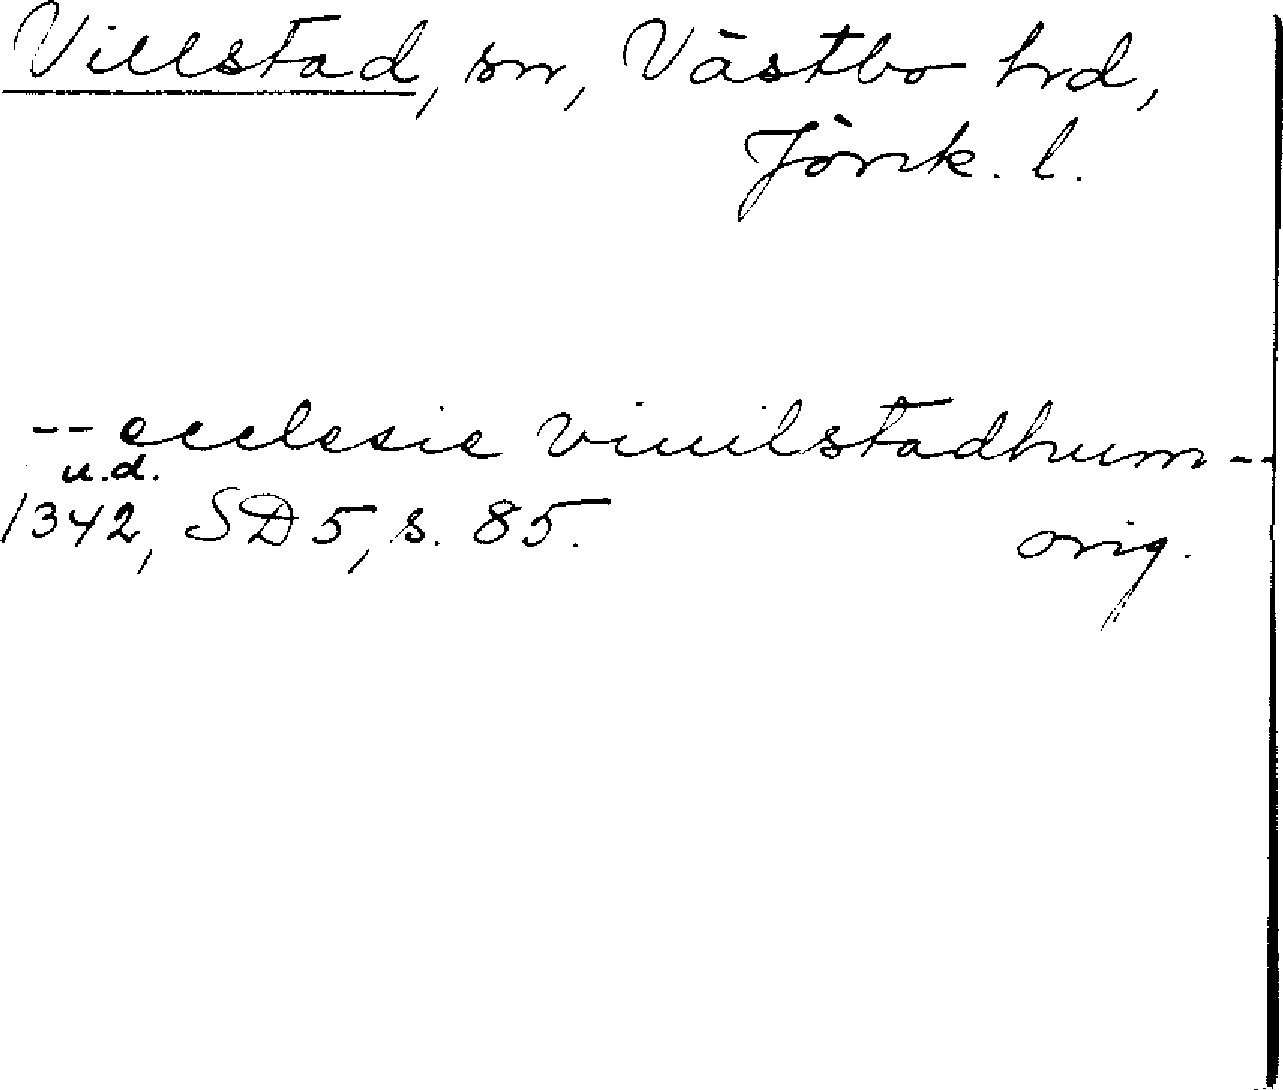 Villstad, sn, Västbo hrd,
Jönk. l.
-- ecclesie viuilstadhum --
u.d.
1342, SD 5, s. 85.
orig.